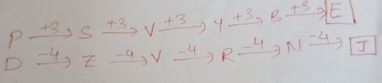 P +3→ S +3→ V +3→ Y +3→ B +3→ E
D -4→ Z -4→ V -4→ R -4→ N -4→ J